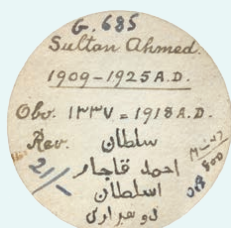 G. 685
Sultan Ahmed.
1909-1925 A.D.
Obv. ١٣٣٧ = 1918 A.D.
Rev. سلطان
21/- احمد قاجار
اسلطان
دو هزاری
800